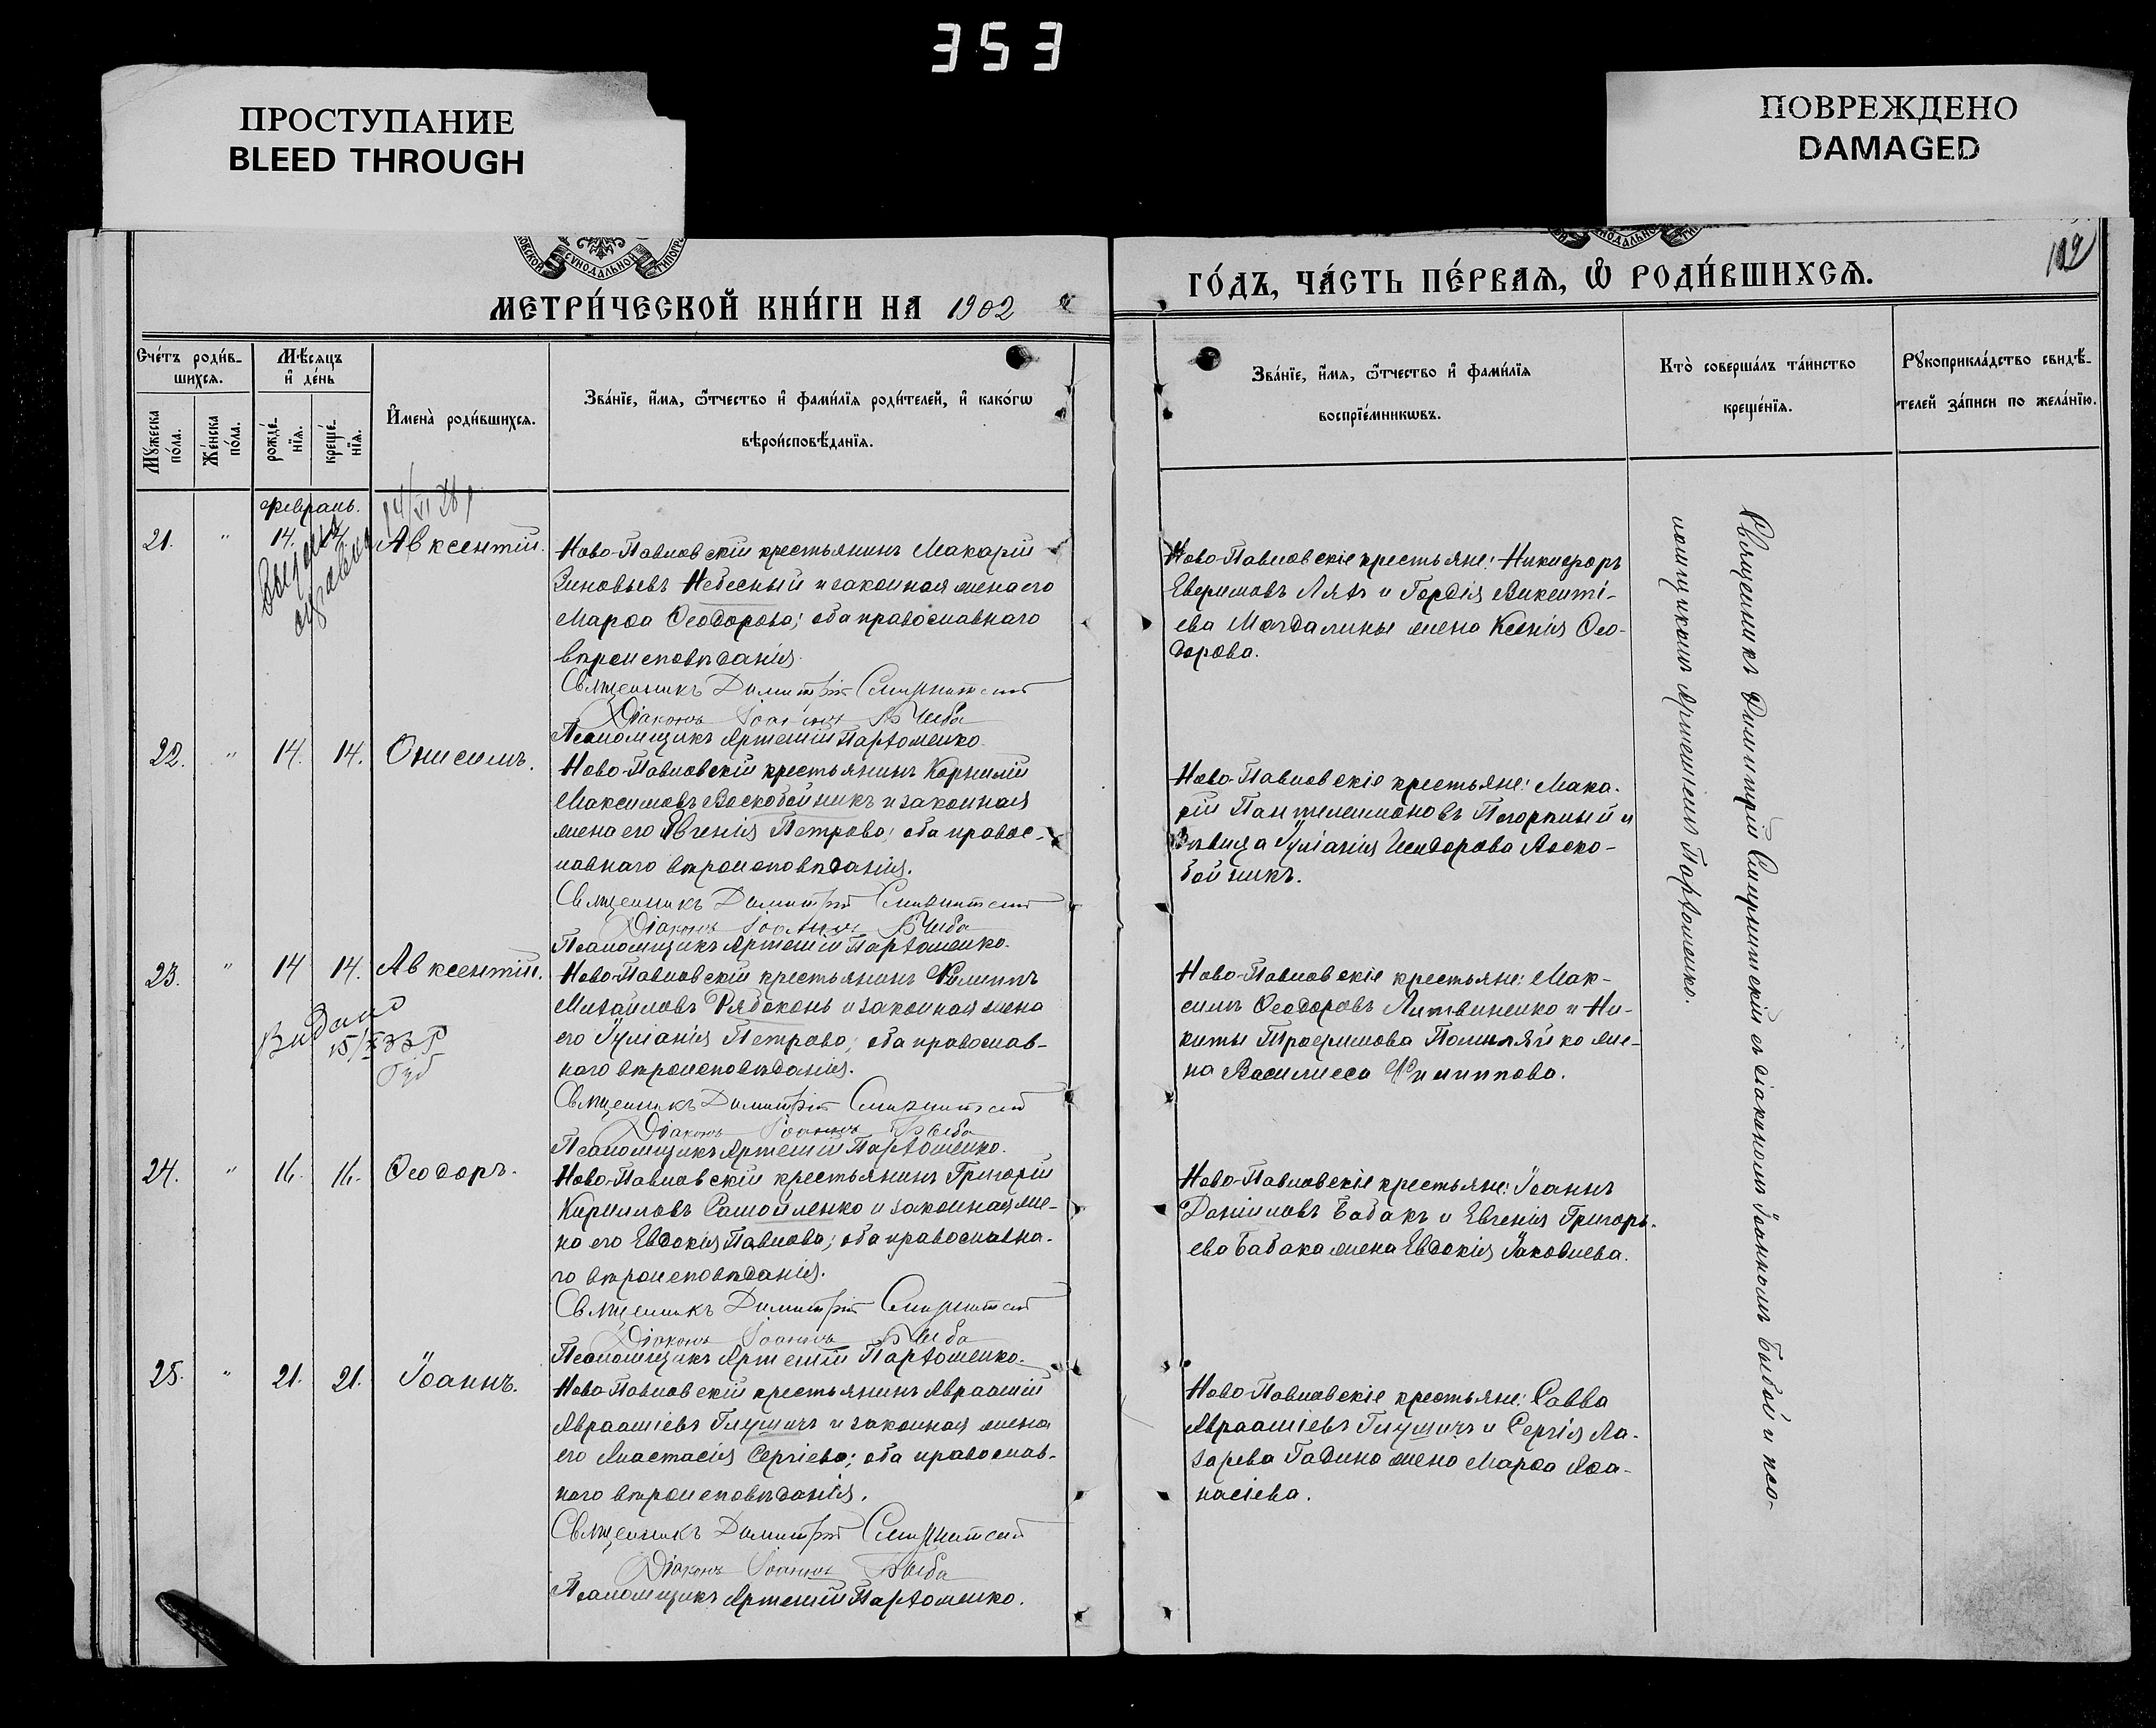 353
ПРОСТУПАНИЕ
BLEED THROUGH
ПОВРЕЖДЕНО
DAMAGED
СѴНОДАЛЬНОЙ
МЕТРИ́ЧЕСКОЙ КНИ́ГИ НА 1902
ГО́ДЪ, ЧА́СТЬ ПЕ́РВАѦ, Ѡ҆ РОДИ́ВШИХСѦ.
102
Счéтъ роди́в-
шихсѧ.
Мꙋ́жеска
по́ла.
Же́нска
по́ла.
Мѣ́сяцъ
и҆ де́нь
рожде́-
нїѧ.
креще́-
нїѧ.
И҆мена̀ роди́вшихсѧ.
Зва́нїе, и҆́мѧ, ѻ҆́тчество и҆ фами́лїѧ роди́телей, и҆ како́гѡ
вѣроисповѣ́данїѧ.
Зва́нїе, и҆́мѧ, ѻ҆́тчество и҆ фами́лїѧ
воспрїе́мникѡвъ.
Кто̀ соверша́лъ та́инство
креще́нїѧ.
Рꙋкоприкла́дство свидѣ́-
телей за́писи по жела́нїю.
Февраль.
21. " 14. Авксентій.
Ново-Павловскій крестьянинъ Макарій
Зиновьевъ Небесный и законная жена его
Марѳа Ѳеодорова; оба православнаго
вѣроисповѣданія.
Священникъ Димитрій Смирнитскій
Діаконъ Іоаннъ Быба
Псаломщикъ Артемій Пархоменко.
Ново-Павловскіе крестьяне: Никифоръ
Евфимовъ Лятъ и Гордія Викенті-
ева Магдалины жена Ксенія Ѳео-
дорова.
22. " 14. 14. Онисимъ.
Ново-Павловскій крестьянинъ Корнилій
Максимовъ Воскобойникъ и законная
жена его Евгенія Петрова; оба правос-
лавнаго вѣроисповѣданія.
Священникъ Димитрій Смирнитскій
Діаконъ Іоаннъ Быба
Псаломщикъ Артемій Пархоменко.
Ново-Павловскіе крестьяне: Мака-
рій Пантелеимоновъ Погорлый и
дѣвица Іуліанія Исидорова Воско-
бойникъ.
23. " 14 14. Авксентій.
Видано
15/X 33 р
Ново-Павловскій крестьянинъ Филиппъ
Михайловъ Рябоконь и законная жена
его Іуліанія Петрова; оба православ-
наго вѣроисповѣданія.
Священникъ Димитрій Смирнитскій
Діаконъ Іоаннъ Быба
Псаломщикъ Артемій Пархоменко.
Ново-Павловскіе крестьяне: Мак-
симъ Ѳеодоровъ Литвиненко и Ни-
киты Трофимова Помиляйко же-
на Василисса Филиппова.
24. " 16. 16. Ѳеодоръ.
Ново-Павловскій крестьянинъ Григорій
Кирилловъ Самойленко и законная же-
на его Евдокія Павлова; оба православна-
го вѣроисповѣданія.
Священникъ Димитрій Смирнитскій
Діаконъ Іоаннъ Быба
Псаломщикъ Артемій Пархоменко.
Ново-Павловскіе крестьяне: Іоаннъ
Даніиловъ Бабакъ и Евгенія Григорь-
ева Бабака жена Евдокія Іаковлева.
25. " 21. 21. Іоаннъ.
Ново-Павловскій крестьянинъ Авраамій
Аврааміевъ Глущичъ и законная жена
его Анастасія Сергіева; оба православ-
наго вѣроисповѣданія.
Священникъ Димитрій Смирнитскій
Діаконъ Іоаннъ Быба
Псаломщикъ Артемій Пархоменко.
Ново-Павловскіе крестьяне: Савва
Аврааміевъ Глущичъ и Сергія Ла-
зарева Гадина жена Марѳа Аѳа-
насіева.
Священникъ Димитрій Смирнитскій съ діакономъ Іоанномъ Быбой и пса-
ломщикомъ Артеміемъ Пархоменко.